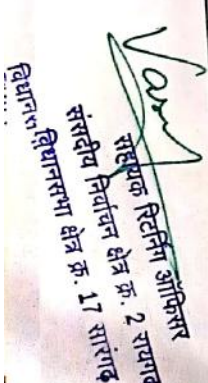 Varu
सहायक रिटर्निंग ऑफिसर
संसदीय निर्वाचन क्षेत्र क्र. 2 रायगढ
विधानसभा क्षेत्र क्र. 17 सारंगढ